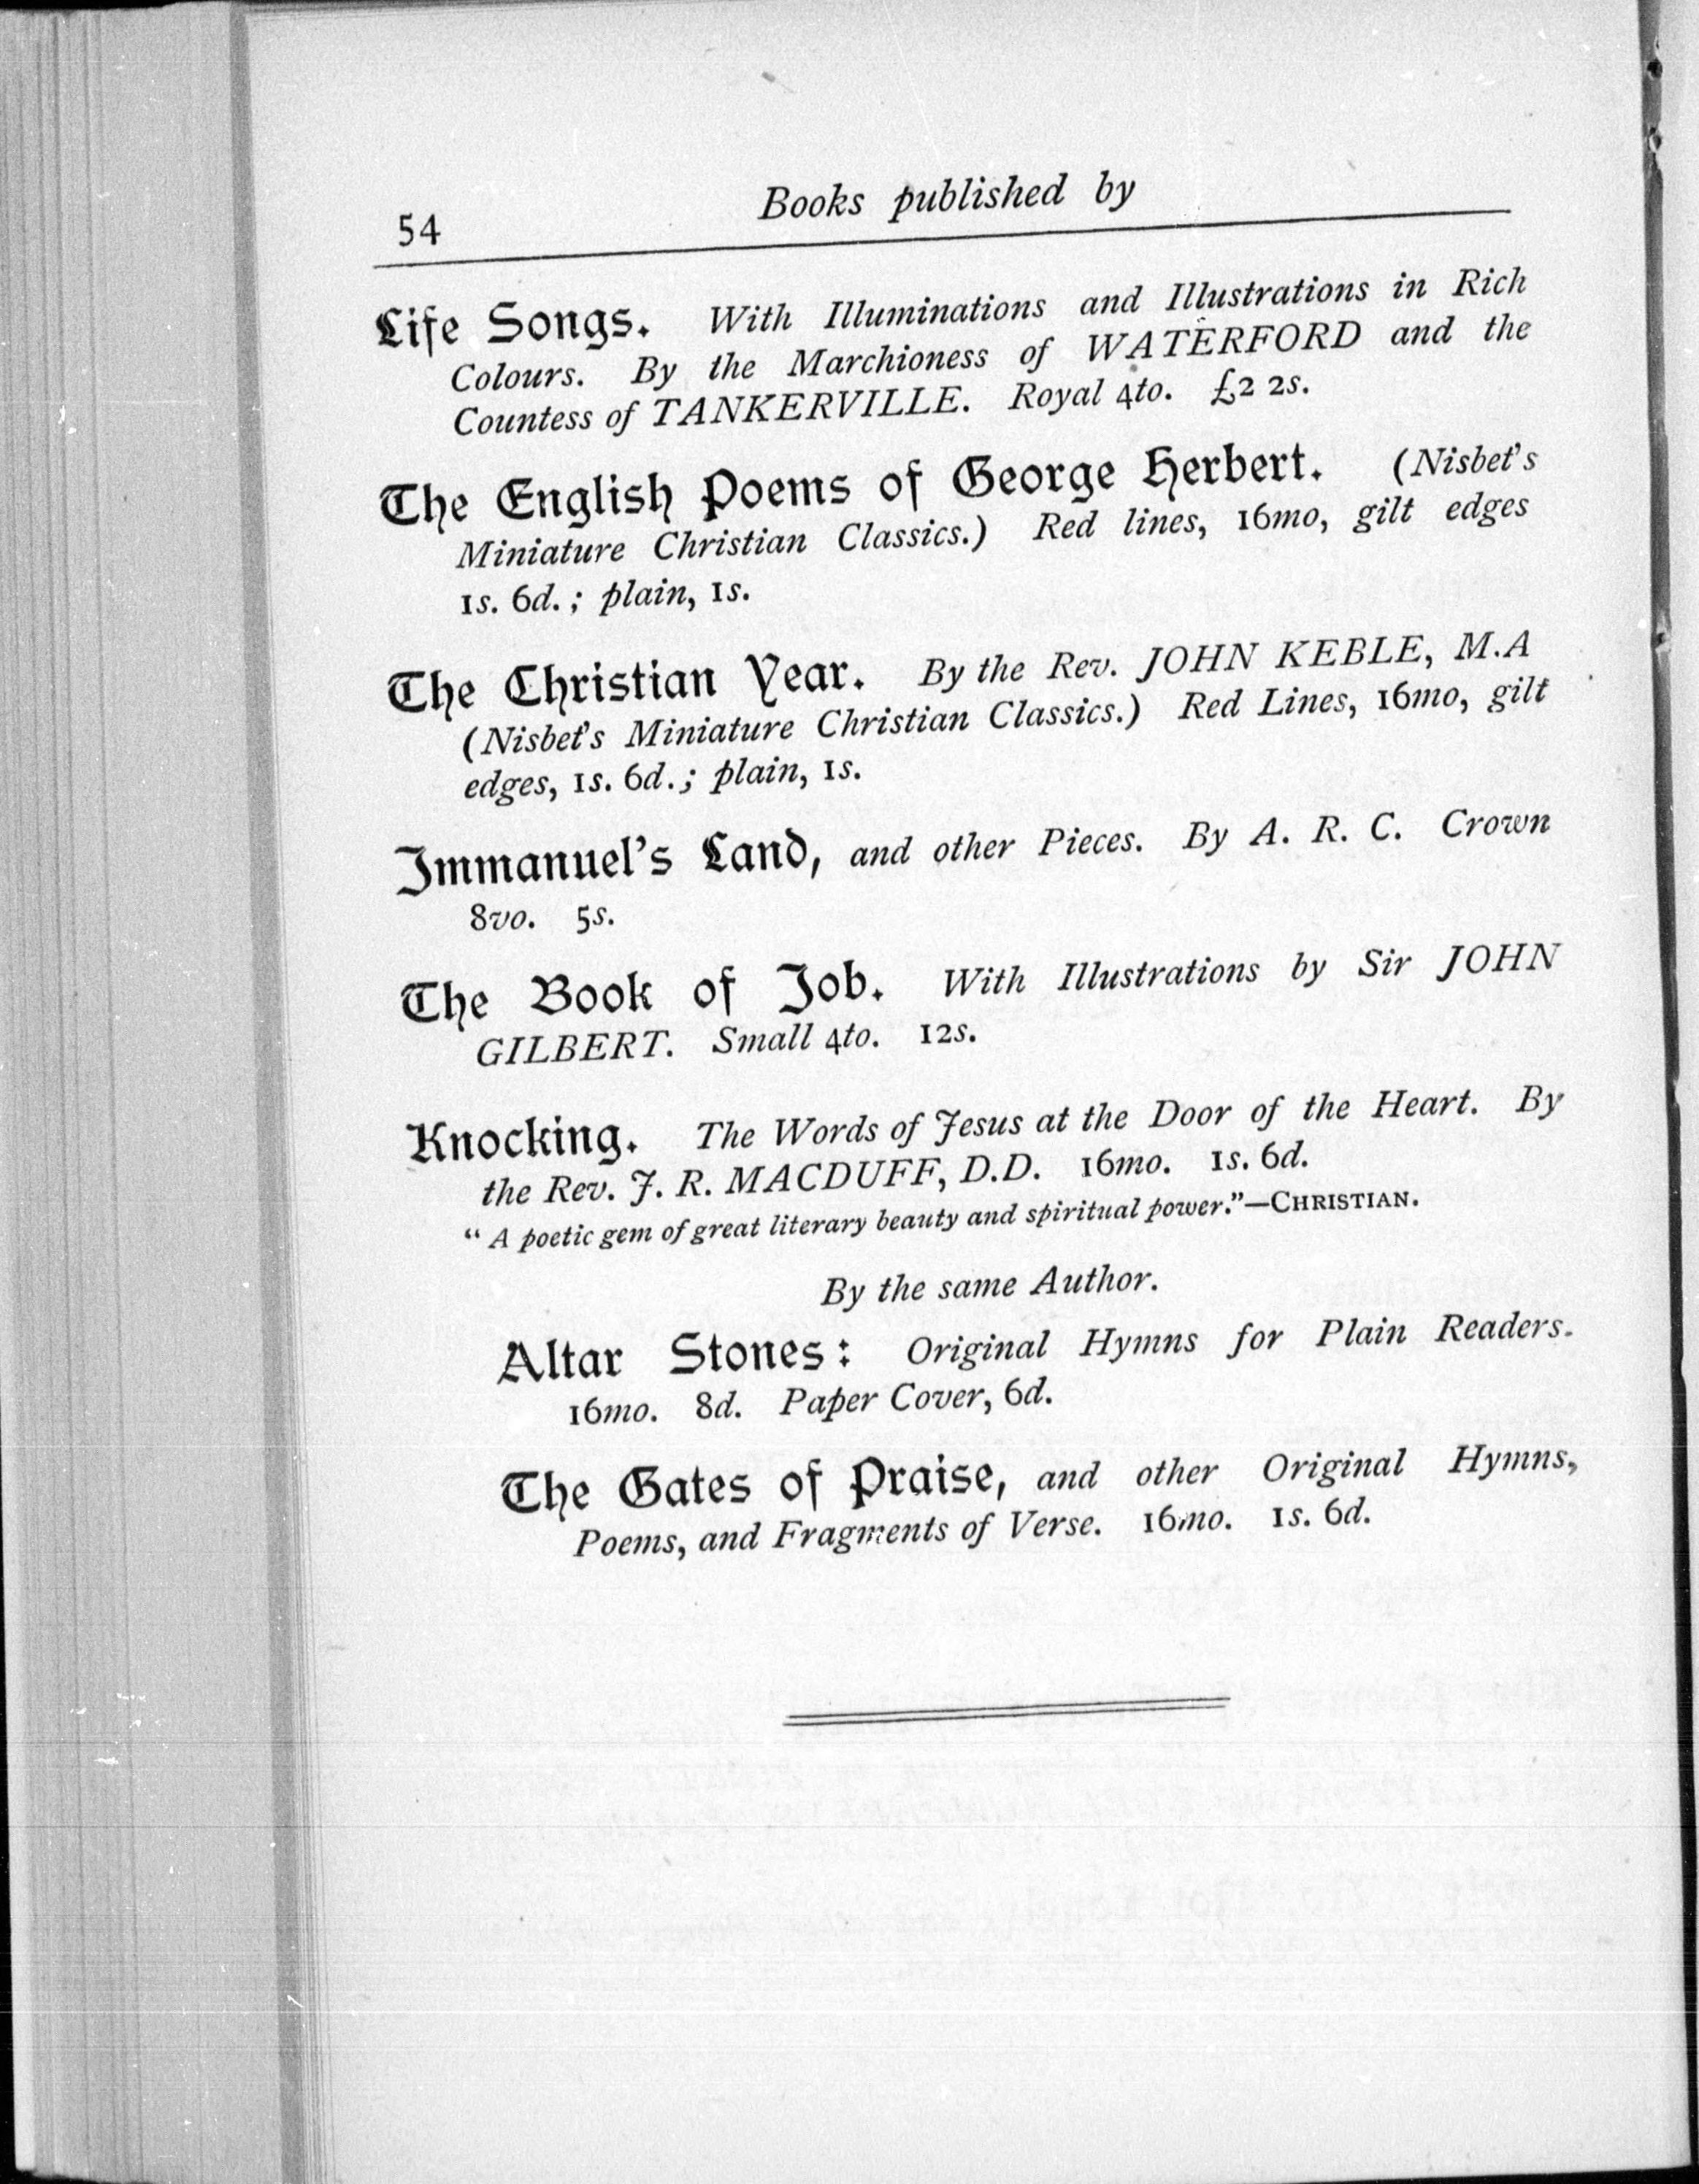 54
Books published by
Life Songs. With Illuminations and Illustrations in Rich
Colours. By the Marchioness of WATERFORD and the
Countess of TANKERVILLE. Royal 4to. £2 2s.
The English Poems of George Herbert. (Nisbet's
Miniature Christian Classics.) Red lines, 16mo, gilt edges
1s. 6d.; plain, 1s.
The Christian Year. By the Rev. JOHN KEBLE, M.A
(Nisbet's Miniature Christian Classics.) Red Lines, 16mo, gilt
edges, 1s. 6d.; plain, 1s.
Immanuel's Land, and other Pieces. By A. R. C. Crown
8vo. 5s.
The Book of Job. With Illustrations by Sir JOHN
GILBERT. Small 4to. 12s.
Knocking. The Words of Jesus at the Door of the Heart. By
the Rev. J. R. MACDUFF, D.D. 16mo. 1s. 6d.
"A poetic gem of great literary beauty and spiritual power."—CHRISTIAN.
By the same Author.
Altar Stones: Original Hymns for Plain Readers.
16mo. 8d. Paper Cover, 6d.
The Gates of Praise, and other Original Hymns,
Poems, and Fragments of Verse. 16mo. 1s. 6d.